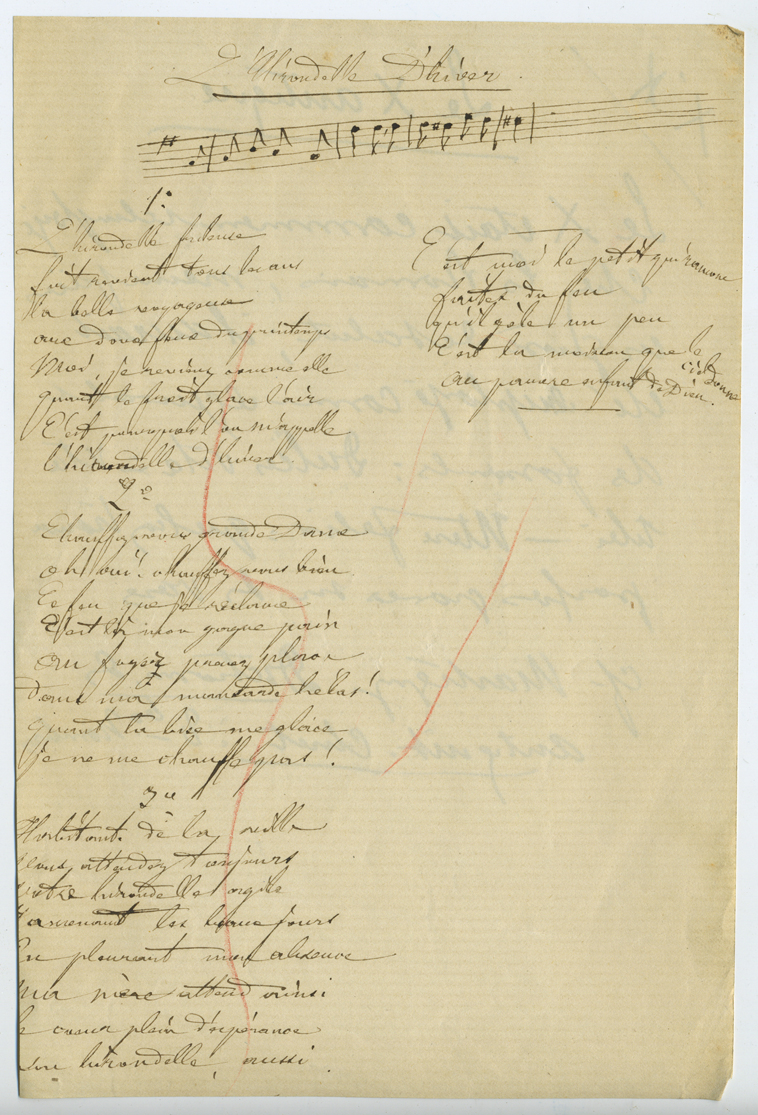 L'Hirondelle D'hiver.
1.
L'hirondelle frileuse
fuit revient tous les ans
la belle voyageuse
aux doux feux du printemps
Moi, je reviens comme elle
quant le froit glace l'air
C'est pourquoi l'on m'appelle
l'hirondelle d'hiver.
2e
Chauffez vous grande Dame
oh oui! chauffez vous bien
Ce feu que je réclame
C'est là mon gagne pain
Au foyer prenez place
dans ma mansarde hélas!
quant la bise me glace
je ne me chauffe pas!
3e
Habitant de la ville
vous attendez toujours
votre hirondelle agile
ramenant les beaux jours
En pleurant mon absence
ma mère attend ainsi
le coeur plein d'espérance
son hirondelle aussi.
C'est moi le petit qui ramone
faites du feu
qu'il gèle un peu
C'est la moisson que le ciel Donne
Au pauvre enfant de Dieu.